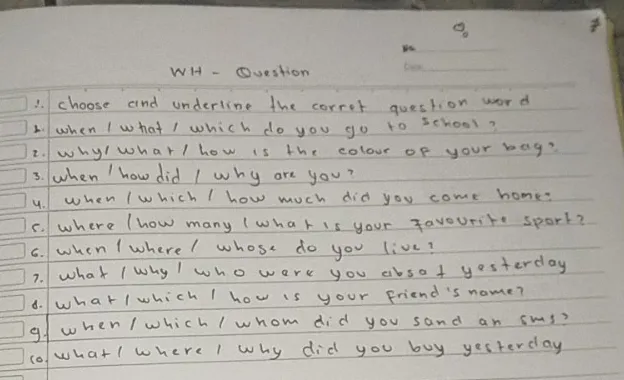 WH - Question
1. choose and underline the corret question word
1. when / what / which do you go to school?
2. why / what / how is the colour of your bag?
3. when / how did / why are you?
4. when / which / how much did you come home?
5. where / how many / what is your favourite sport?
6. when / where / whose do you live?
7. what / why / who were you absat yesterday
8. what / which / how is your friend's name?
9. when / which / whom did you sand an sms?
10. what / where / why did you buy yesterday